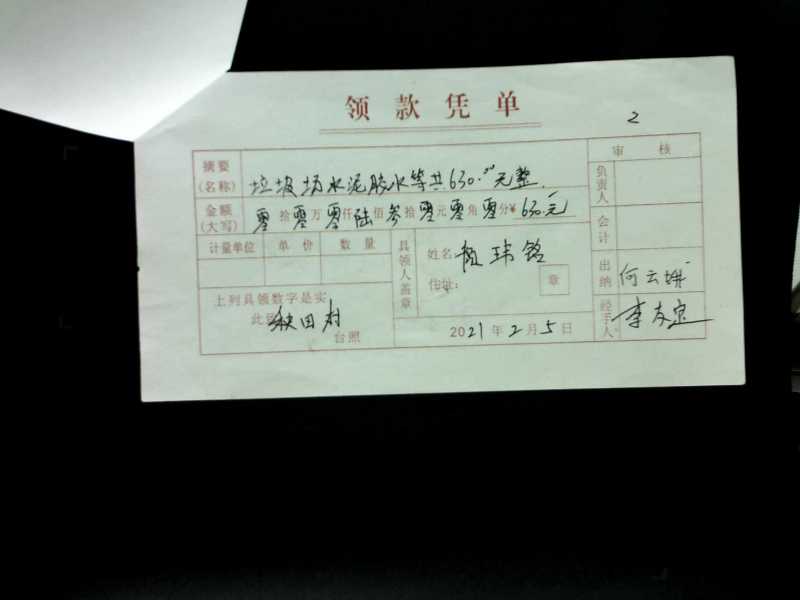 领款凭单
2
摘要(名称) 垃圾场水泥胶水等共630.00元整.
审核
负责人
金额(大写) 零拾零万零仟陆佰叁拾零元零角零分¥630元
会计
计量单位 单价 数量
具领人盖章
姓名: 玮铭
住址:
章
出纳 何云
上列具领数字是实
此据
秧田村
台照
2021年2月5日
经手人 李友